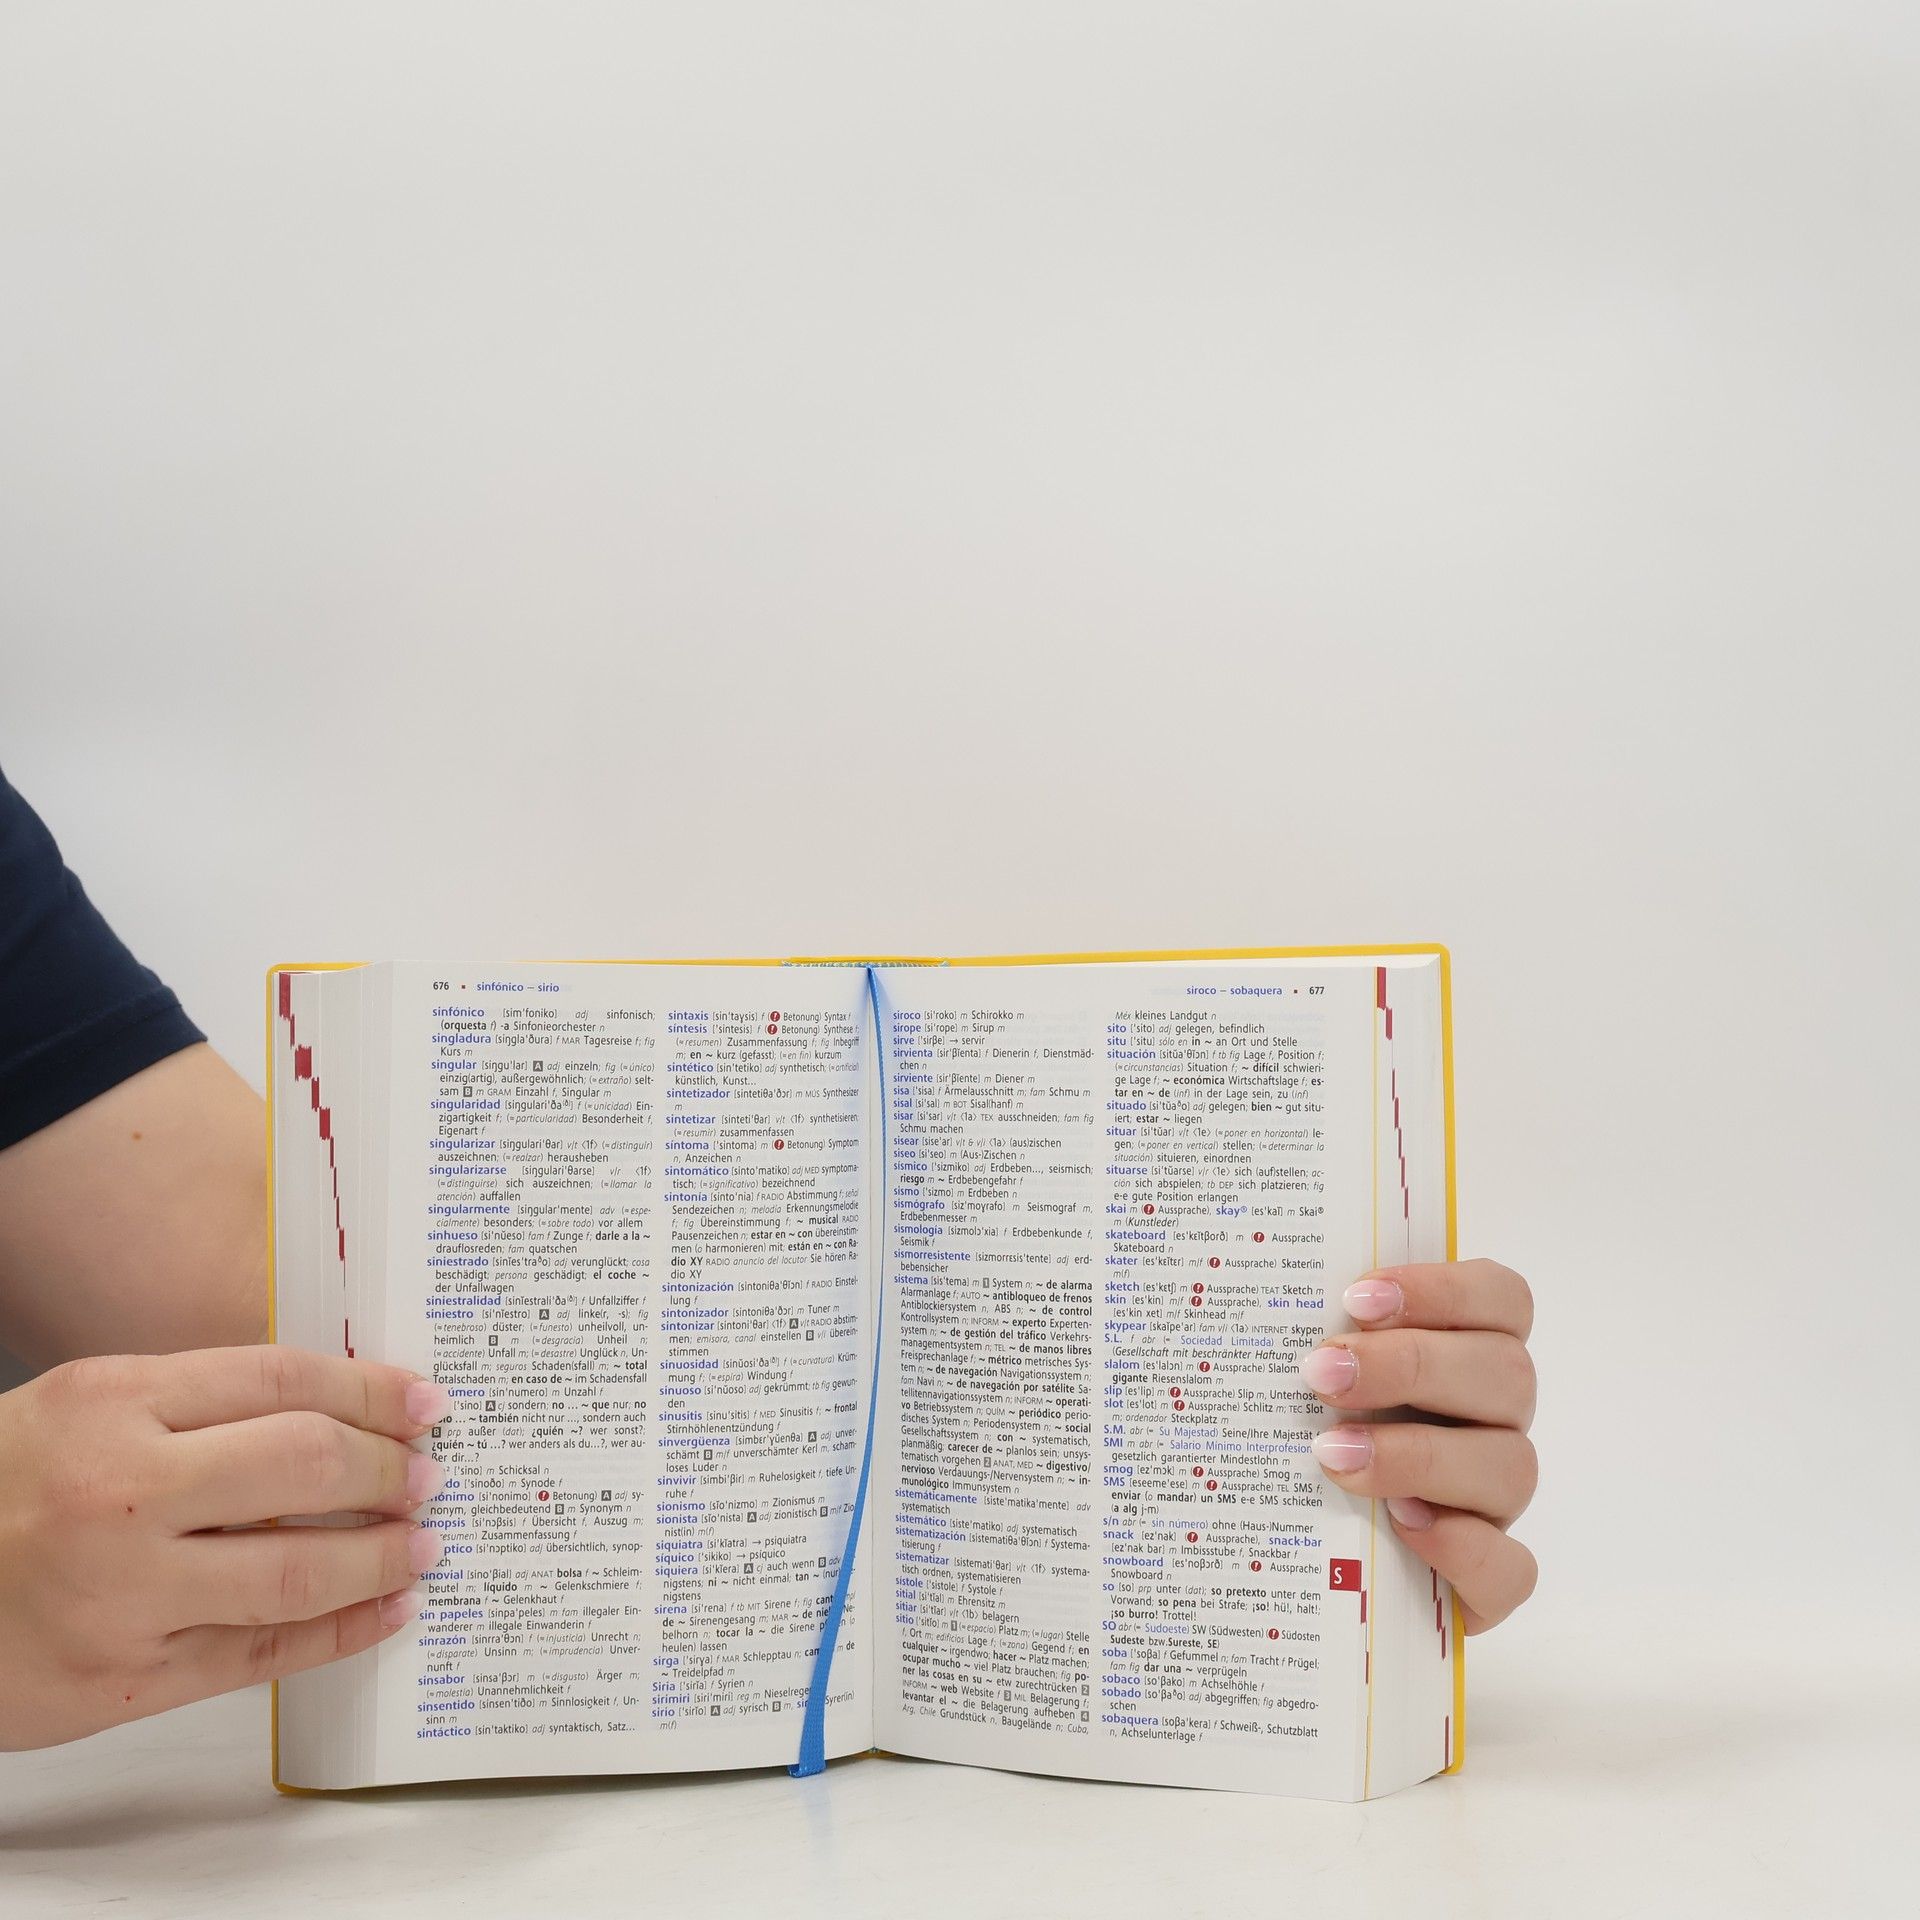 676 ▪ sinfónico – sirio
sinfónico [simˈfoniko] adj sinfonisch;
(orquesta f) -a Sinfonieorchester n
singladura [siŋglaˈðura] f MAR Tagesreise f; fig
Kurs m
singular [siŋguˈlar] A adj einzeln; fig (≈único)
einzig(artig), außergewöhnlich; (≈extraño) selt-
sam B m GRAM Einzahl f, Singular m
singularidad f (≈unicidad) Ein-
zigartigkeit f; (≈particularidad) Besonderheit f,
Eigenart f
singularizar [siŋgulariˈθar] v/t ⟨1f⟩ (≈distinguir)
auszeichnen; (≈realzar) herausheben
singularizarse [siŋgulariˈθarse] v/r ⟨1f⟩
(≈distinguirse) sich auszeichnen; (≈llamar la
atención) auffallen
singularmente [siŋgularˈmente] adv (≈espe-
cialmente) besonders; (≈sobre todo) vor allem
sinhueso [siˈnŭeso] fam f Zunge f; darle a la ~
drauflosreden; fam quatschen
siniestrado adj verunglückt; cosa
beschädigt; persona geschädigt; el coche ~
der Unfallwagen
siniestralidad f Unfallziffer f
siniestro [siˈnĭestro] A adj linke(r, -s); fig
(≈tenebroso) düster; (≈funesto) unheilvoll, un-
heimlich B m (≈desgracia) Unheil n;
(≈accidente) Unfall m; (≈desastre) Unglück n, Un-
glücksfall m; seguros Schaden(sfall) m; ~ total
Totalschaden m; en caso de ~ im Schadensfall
úmero [sinˈnumero] m Unzahl f
[ˈsino] A cj sondern; no ... ~ que nur; no
... ~ también nicht nur ..., sondern auch
B prp außer (dat); ¿quién ~? wer sonst?;
¿quién ~ tú ...? wer anders als du...?, wer au-
ßer dir...?
[ˈsino] m Schicksal n
do [ˈsinoðo] m Synode f
ónimo [siˈnonimo] (! Betonung) A adj sy-
nonym, gleichbedeutend B m Synonym n
sinopsis [siˈnɔβsis] f Übersicht f, Auszug m;
resumen) Zusammenfassung f
ptico [siˈnɔptiko] adj übersichtlich, synop-
sch
sinovial [sinoˈβĭal] adj ANAT bolsa f ~ Schleim-
beutel m; líquido m ~ Gelenkschmiere f;
membrana f ~ Gelenkhaut f
sin papeles [sinpaˈpeles] m fam illegaler Ein-
wanderer m illegale Einwanderin f
sinrazón [sinrraˈθɔn] f (≈injusticia) Unrecht n;
(≈disparate) Unsinn m; (≈imprudencia) Unver-
nunft f
sinsabor [sinsaˈβɔr] m (≈disgusto) Ärger m;
(≈molestia) Unannehmlichkeit f
sinsentido [sinsenˈtiðo] m Sinnlosigkeit f, Un-
sinn m
sintáctico [sinˈtaktiko] adj syntaktisch, Satz...
sintaxis [sinˈtaɣsis] f (! Betonung) Syntax f
síntesis [ˈsintesis] f (! Betonung) Synthese f;
(≈resumen) Zusammenfassung f; fig Inbegriff
m; en ~ kurz (gefasst); (≈en fin) kurzum
sintético [sinˈtetiko] adj synthetisch; (≈artificial)
künstlich, Kunst...
sintetizador [sintetiθaˈðɔr] m MÚS Synthesizer
m
sintetizar [sintetiˈθar] v/t ⟨1f⟩ synthetisieren;
(≈resumir) zusammenfassen
síntoma [ˈsintoma] m (! Betonung) Symptom
n, Anzeichen n
sintomático [sintoˈmatiko] adj MED symptoma-
tisch; (≈significativo) bezeichnend
sintonía [sintoˈnia] f RADIO Abstimmung f; señal
Sendezeichen n; melodía Erkennungsmelodie
f; fig Übereinstimmung f; ~ musical RADIO
Pausenzeichen n; estar en ~ con übereinstim-
men (o harmonieren) mit; están en ~ con Ra-
dio XY RADIO anuncio del locutor Sie hören Ra-
dio XY
sintonización [sintoniθaˈθĭɔn] f RADIO Einstel-
lung f
sintonizador [sintoniθaˈðɔr] m Tuner m
sintonizar [sintoniˈθar] ⟨1f⟩ A v/t RADIO abstim-
men; emisora, canal einstellen B v/i überein-
stimmen
sinuosidad f (≈curvatura) Krüm-
mung f; (≈espira) Windung f
sinuoso [siˈnŭoso] adj gekrümmt; tb fig gewun-
den
sinusitis [sinuˈsitis] f MED Sinusitis f; ~ frontal
Stirnhöhlenentzündung f
sinvergüenza [simberˈɣŭenθa] A adj unver-
schämt B m/f unverschämter Kerl m, scham-
loses Luder n
sinvivir [simbiˈβir] m Ruhelosigkeit f, tiefe Un-
ruhe f
sionismo [sĭoˈnizmo] m Zionismus m
sionista [sĭoˈnista] A adj zionistisch B m/f Zio-
nist(in) m(f)
siquiatra [siˈkĭatra] → psiquiatra
síquico [ˈsikiko] → psíquico
siquiera [siˈkĭera] A cj auch wenn B adv
nigstens; ni ~ nicht einmal; tan ~ (nur)
nigstens
sirena [siˈrena] f tb MIT Sirene f; fig
de ~ Sirenengesang m; MAR ~ de
belhorn n; tocar la ~ die Sirene
heulen) lassen
sirga [ˈsirɣa] f MAR Schlepptau n; de
~ Treidelpfad m
Siria [ˈsirĭa] f Syrien n
sirimiri [siriˈmiri] reg m Nieselregen
sirio [ˈsirĭo] A adj syrisch B m, Syrer(in)
m(f)
siroco – sobaquera ▪ 677
siroco [siˈroko] m Schirokko m
sirope [siˈrope] m Sirup m
sirve [ˈsirβe] → servir
sirvienta [sirˈβĭenta] f Dienerin f, Dienstmäd-
chen n
sirviente [sirˈβĭente] m Diener m
sisa [ˈsisa] f Ärmelausschnitt m; fam Schmu m
sisal [siˈsal] m BOT Sisal(hanf) m
sisar [siˈsar] v/t ⟨1a⟩ TEX ausschneiden; fam fig
Schmu machen
sisear [siseˈar] v/t & v/i ⟨1a⟩ (aus)zischen
siseo [siˈseo] m (Aus-)Zischen n
sísmico [ˈsizmiko] adj Erdbeben..., seismisch;
riesgo m ~ Erdbebengefahr f
sismo [ˈsizmo] m Erdbeben n
sismógrafo [sizˈmoɣrafo] m Seismograf m,
Erdbebenmesser m
sismología [sizmolɔˈxia] f Erdbebenkunde f,
Seismik f
sismorresistente [sizmɔrresisˈtente] adj erd-
bebensicher
sistema [sisˈtema] m 1 System n; ~ de alarma
Alarmanlage f; AUTO ~ antibloqueo de frenos
Antiblockiersystem n, ABS n; ~ de control
Kontrollsystem n; INFORM ~ experto Experten-
system n; ~ de gestión del tráfico Verkehrs-
managementsystem n; TEL ~ de manos libres
Freisprechanlage f; ~ métrico metrisches Sys-
tem n; ~ de navegación Navigationssystem n;
fam Navi n; ~ de navegación por satélite Sa-
tellitennavigationssystem n; INFORM ~ operati-
vo Betriebssystem n; QUÍM ~ periódico perio-
disches System n; Periodensystem n; ~ social
Gesellschaftssystem n; con ~ systematisch,
planmäßig; carecer de ~ planlos sein; unsys-
tematisch vorgehen 2 ANAT, MED ~ digestivo/
nervioso Verdauungs-/Nervensystem n; ~ in-
munológico Immunsystem n
sistemáticamente [sisteˈmatikaˈmente] adv
systematisch
sistemático [sisteˈmatiko] adj systematisch
sistematización [sistematiθaˈθĭɔn] f Systema-
tisierung f
sistematizar [sistematiˈθar] v/t ⟨1f⟩ systema-
tisch ordnen, systematisieren
sístole [ˈsistole] f Systole f
sitial [siˈtĭal] m Ehrensitz m
sitiar [siˈtĭar] v/t ⟨1b⟩ belagern
sitio [ˈsitĭo] m 1 (≈espacio) Platz m; (≈lugar) Stelle
f, Ort m; edificios Lage f; (≈zona) Gegend f; en
cualquier ~ irgendwo; hacer ~ Platz machen;
ocupar mucho ~ viel Platz brauchen; fig po-
ner las cosas en su ~ etw zurechtrücken 2
INFORM ~ web Website f 3 MIL Belagerung f;
levantar el ~ die Belagerung aufheben 4
Arg, Chile Grundstück n, Baugelände n; Cuba,
Méx kleines Landgut n
sito [ˈsito] adj gelegen, befindlich
situ [ˈsitu] sólo en in ~ an Ort und Stelle
situación [sitŭaˈθĭɔn] f tb fig Lage f, Position f;
(≈circunstancias) Situation f; ~ difícil schwieri-
ge Lage f; ~ económica Wirtschaftslage f; es-
tar en ~ de (inf) in der Lage sein, zu (inf)
situado adj gelegen; bien ~ gut situ-
iert; estar ~ liegen
situar [siˈtŭar] v/t ⟨1e⟩ (≈poner en horizontal) le-
gen; (≈poner en vertical) stellen; (≈determinar la
situación) situieren, einordnen
situarse [siˈtŭarse] v/r ⟨1e⟩ sich (auf)stellen; ac-
ción sich abspielen; tb DEP sich platzieren; fig
e-e gute Position erlangen
skai m (! Aussprache), skay® [esˈkaĭ] m Skai®
m (Kunstleder)
skateboard [esˈkeĭtβorð] m (! Aussprache)
Skateboard n
skater [esˈkeĭtɛr] m/f (! Aussprache) Skater(in)
m(f)
sketch [esˈketʃ] m (! Aussprache) TEAT Sketch m
skin [esˈkin] m/f (! Aussprache), skin head
[esˈkin xet] m/f Skinhead m/f
skypear [skaĭpeˈar] fam v/i ⟨1a⟩ INTERNET skypen
S.L. f abr (≈ Sociedad Limitada) GmbH f
(Gesellschaft mit beschränkter Haftung)
slalom [esˈlalɔn] m (! Aussprache) Slalom
gigante Riesenslalom m
slip [esˈlip] m (! Aussprache) Slip m, Unterhose
slot [esˈlot] m (! Aussprache) Schlitz m; TEC Slot
m; ordenador Steckplatz m
S.M. abr (≈ Su Majestad) Seine/Ihre Majestät f
SMI m abr (≈ Salario Mínimo Interprofesion
gesetzlich garantierter Mindestlohn m
smog [ezˈmɔk] m (! Aussprache) Smog m
SMS [eseemeˈese] m (! Aussprache) TEL SMS f;
enviar (o mandar) un SMS e-e SMS schicken
(a alg j-m)
s/n abr (≈ sin número) ohne (Haus-)Nummer
snack [ezˈnak] (! Aussprache), snack-bar
[ezˈnak bar] m Imbissstube f, Snackbar f
snowboard [esˈnoβɔrð] m (! Aussprache)
Snowboard n
so [so] prp unter (dat); so pretexto unter dem
Vorwand; so pena bei Strafe; ¡so! hü!, halt!;
¡so burro! Trottel!
SO abr (≈ Sudoeste) SW (Südwesten) (! Südosten
Sudeste bzw.Sureste, SE)
soba [ˈsoβa] f Gefummel n; fam Tracht f Prügel;
fam fig dar una ~ verprügeln
sobaco [soˈβako] m Achselhöhle f
sobado adj abgegriffen; fig abgedro-
schen
sobaquera [soβaˈkera] f Schweiß-, Schutzblatt
n, Achselunterlage f
S